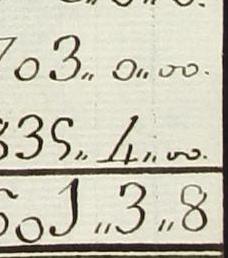 703,, 0,,00.
835,, 4,,00.
501,,3,,8